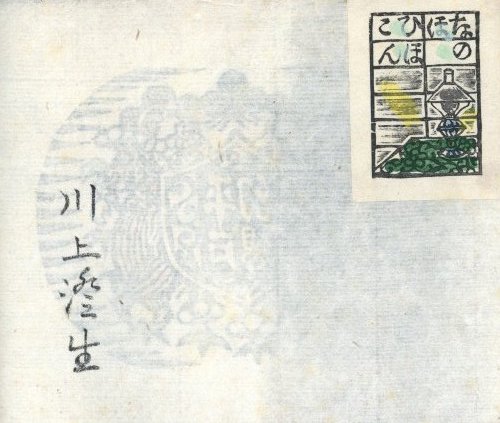 なほひこ
のほん
川上澄生